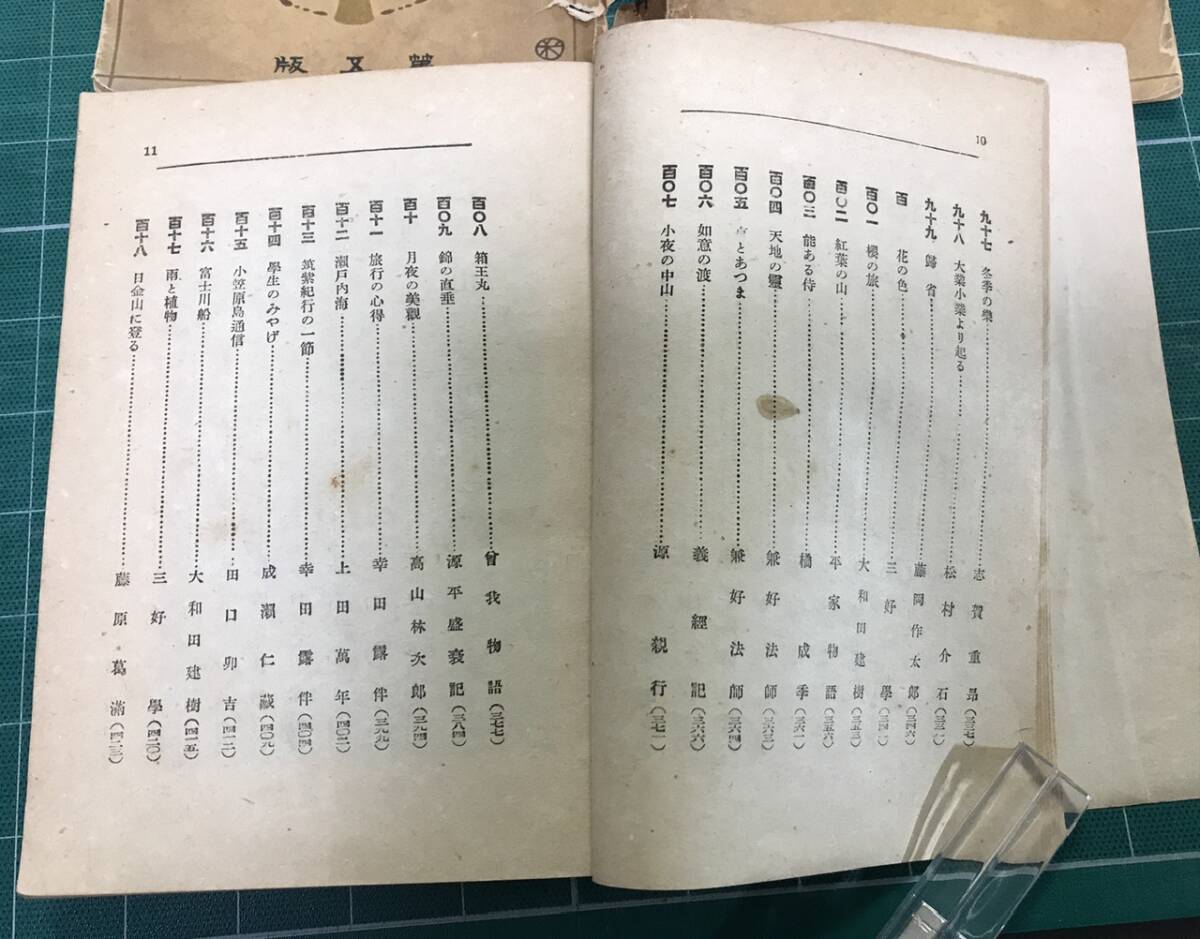 版五第
10
九十七 冬季の樂……志賀重昂(三三七)
九十八 大業小業より起る……松村介石
九十九 歸省……藤岡作太郎(三四六)
百 花の色……三好學
百〇一 櫻の旅……大和田建樹(三五三)
百〇二 紅葉の山……平家物語(三五六)
百〇三 能ある侍……橘成季(三六一)
百〇四 天地の靈……兼好法師(三六三)
百〇五 とあつま……兼好法師(三六四)
百〇六 如意の渡……義經記(三六六)
百〇七 小夜の中山……源親行(三七一)
11
百〇八 箱王丸……曾我物語(三七七)
百〇九 錦の直垂……源平盛衰記(三八四)
百十 月夜の美觀……高山林次郎(三九四)
百十一 旅行の心得……幸田露伴(三九九)
百十二 瀬戸内海……上田萬年(四〇二)
百十三 筑紫紀行の一節……幸田露伴(四〇四)
百十四 學生のみやげ……成瀬仁藏(四〇九)
百十五 小笠原島通信……田口卯吉(四一二)
百十六 富士川船……大和田建樹(四一五)
百十七 雨と植物……三好學(四二〇)
百十八 日金山に登る……藤原葛滿(四二三)